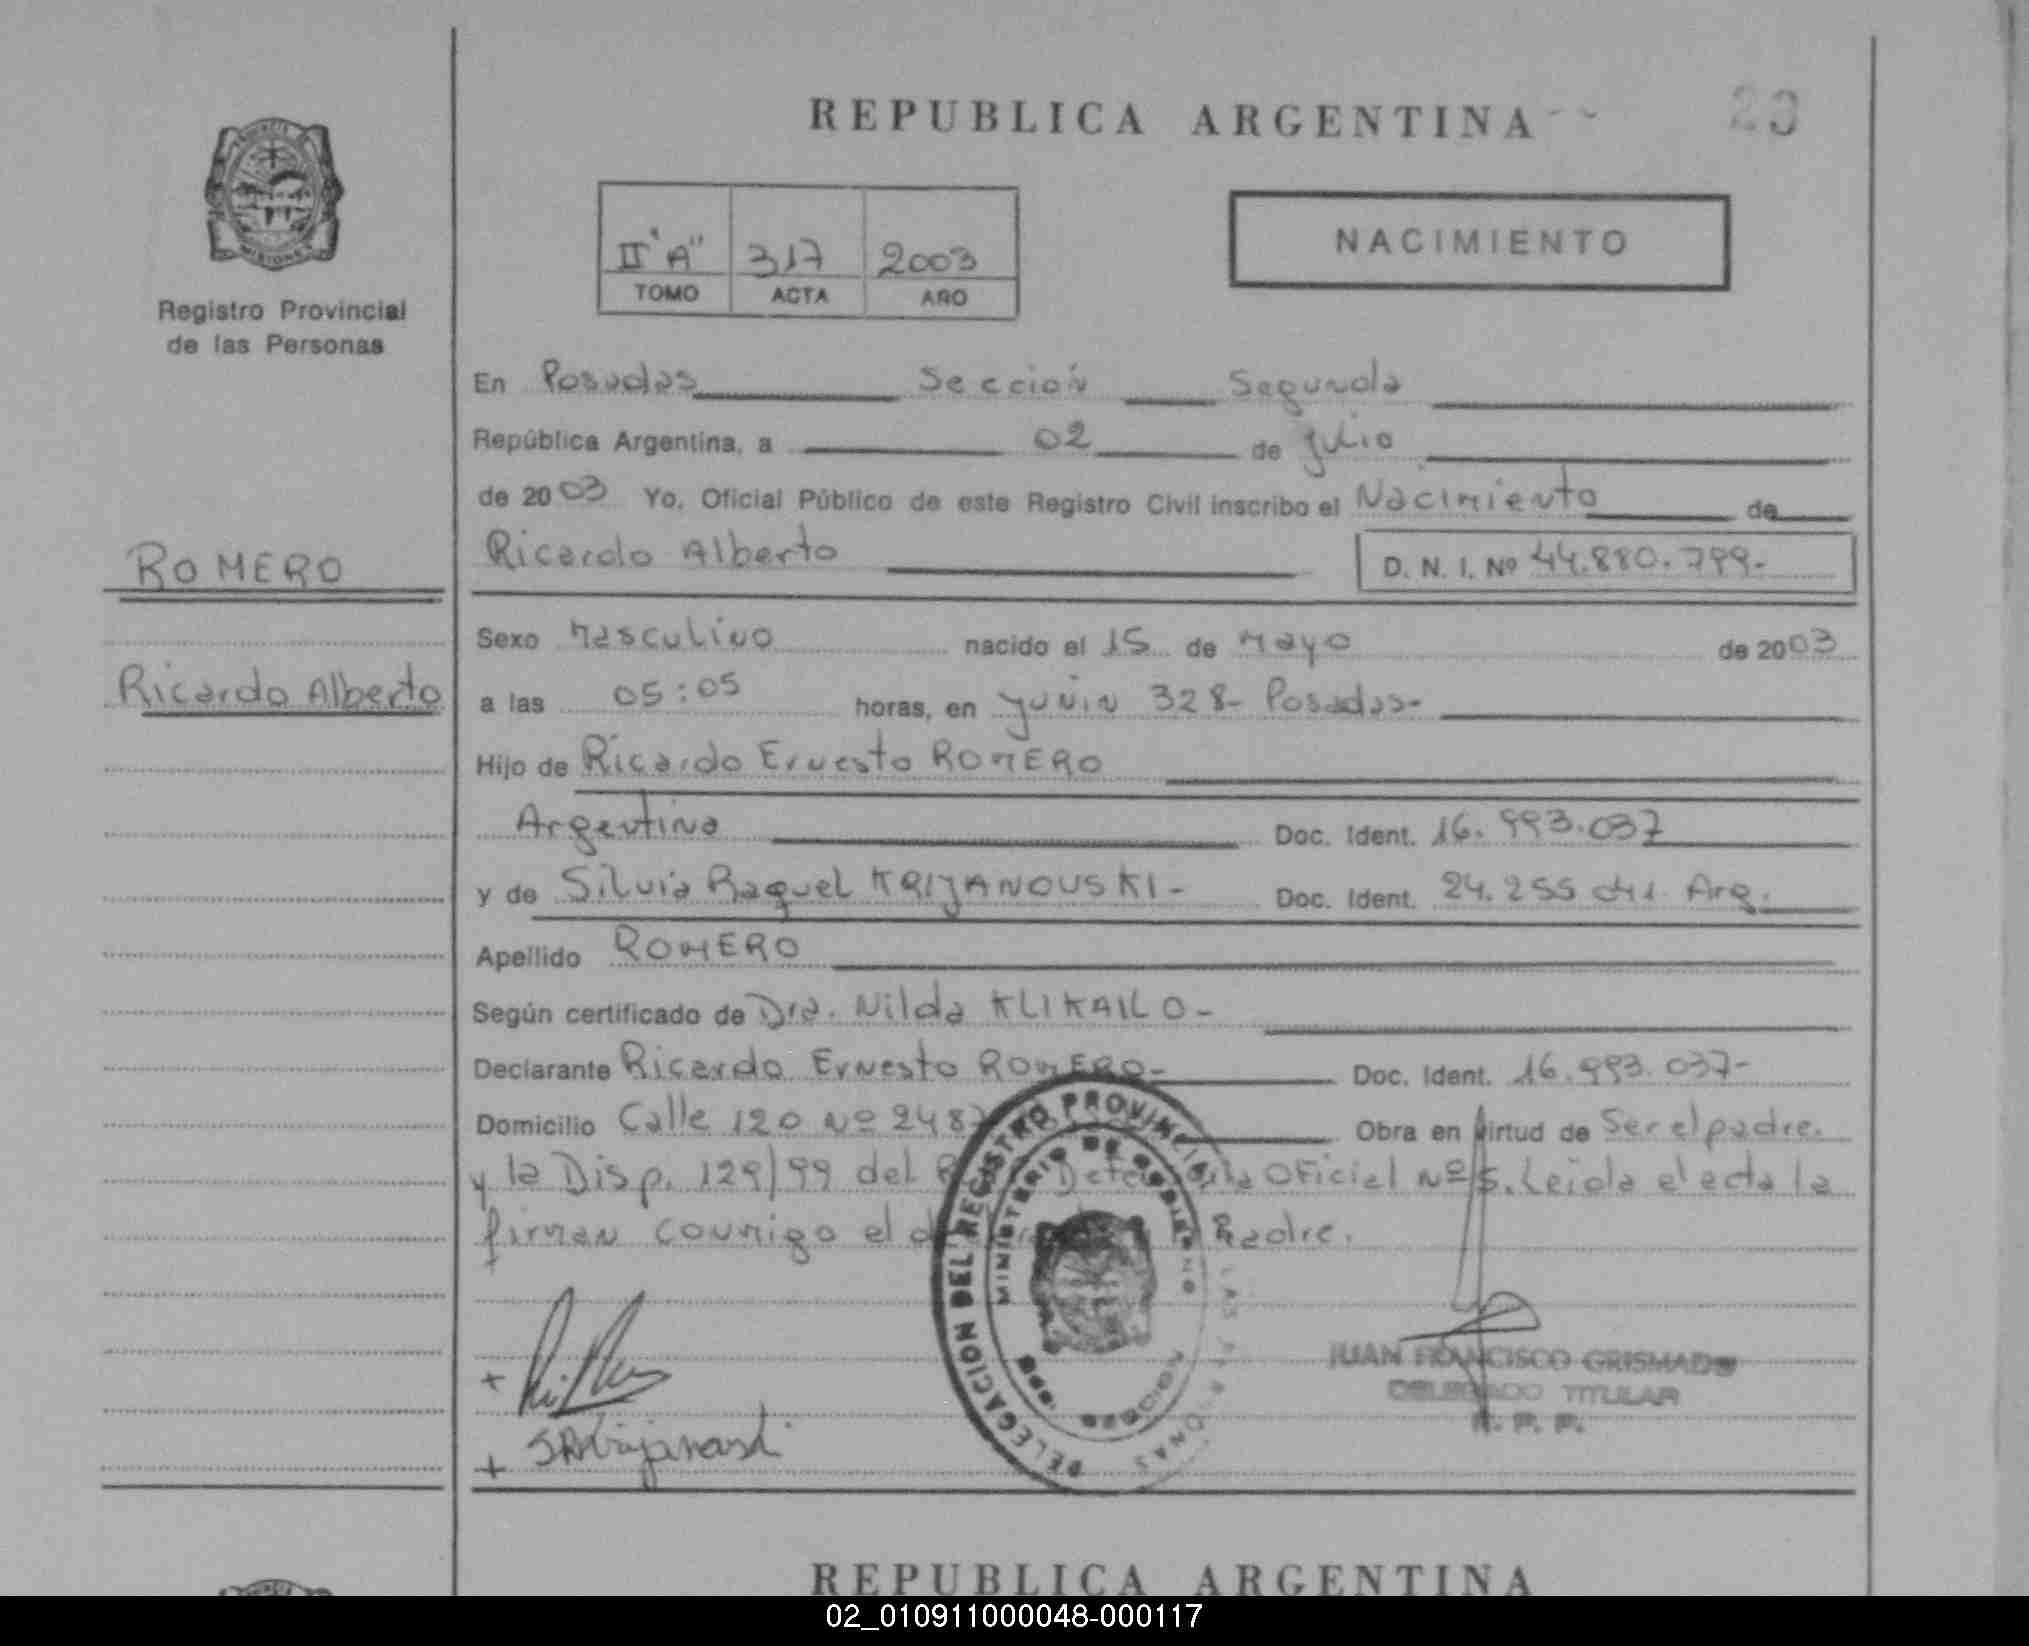 REPUBLICA ARGENTINA
23
II "A" 317 2003
TOMO ACTA AÑO
NACIMIENTO
PROVINCIA DE
MISIONES
Registro Provincial
de las Personas
En Posadas Sección Segunda
República Argentina, a 02 de Julio
de 2003 Yo, Oficial Público de este Registro Civil inscribo el Nacimiento de
ROMERO
Ricardo Alberto D. N. I. Nº 44.880.799.-
Sexo Masculino nacido el 15 de Mayo de 2003
Ricardo Alberto
a las 05:05 horas, en Junin 328- Posadas-
Hijo de Ricardo Ernesto ROMERO
Argentino Doc. Ident. 16.993.037
y de Silvia Raquel KRIJANOUSKI- Doc. Ident. 24.255.041 Arg.
Apellido ROMERO
Según certificado de Dra. Nilda KLIKAILO-
Declarante Ricardo Ernesto ROMERO- Doc. Ident. 16.993.037-
Domicilio Calle 120 Nº 248 Obra en virtud de Ser el padre.
y la Disp. 129/99 del Oficial Nº 5. Leida el acta la
firman conmigo el Padre.
DELEGACION DEL REGISTRO PROVINCIAL LAS PERSONAS
MINISTERIO DE GOBIERNO
MISIONES
JUAN FRANCISCO GRISMADO
DELEGADO TITULAR
R. P. P.
+
+ SRKrijanouski
REPUBLICA ARGENTINA
02_010911000048-000117